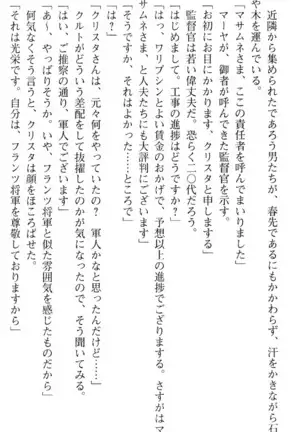 近隣から集められたであろう男たちが、春先であるにもかかわらず、汗をかきながら石
や木を運んでいる。
「マサムネさま、ここの責任者を呼んでまいりました」
マーヤが、御者が呼んできた監督官を示す。
「お初にお目にかかります、クリスタと申しまする」
監督官は若い偉丈夫だ。恐らく二〇代だろう。
「はじめまして。工事の進捗はどうですか？」
「はっ、ワリプシンとよい賃金のおかげで、予想以上の進捗でござりまする。さすがはマ
サムネさま、と人夫たちにも大評判にござります」
「そうですか、それはよかった……ところで」
「は？」
「クリスタさんは、元々何をやっていたの？　軍人かなと思ったんだけど……」
クルトがどういう差配をして抜擢したのかが気になったので、そう聞いてみる。
「はい、ご推察の通り、軍人でございます」
「あ～、やっぱりそうか。いや、フランツ将軍と似た雰囲気を感じたものだから」
何気なくそう言うと、クリスタは顔をほころばせた。
「それは光栄です。自分は、フランツ将軍を尊敬しておりますから」